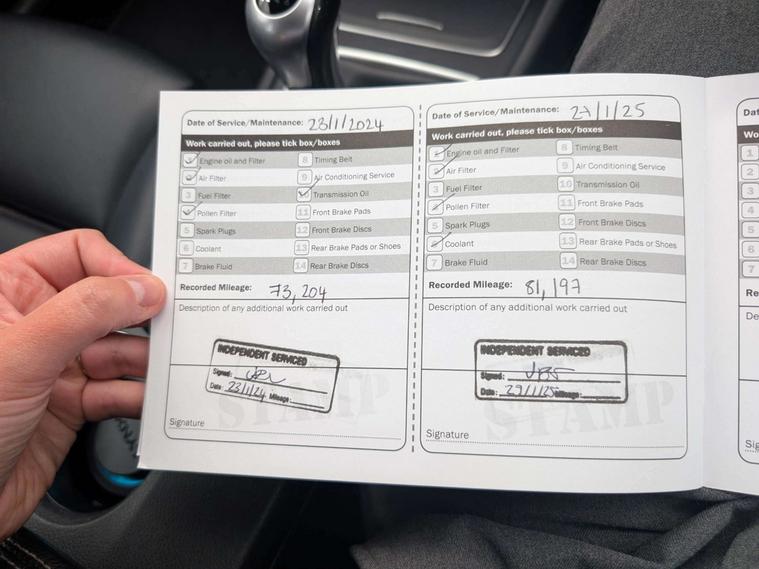 Date of Service/Maintenance: 23/1/2024
Work carried out, please tick box/boxes
1 Engine oil and Filter 8 Timing Belt
2 Air Filter 9 Air Conditioning Service
3 Fuel Filter 10 Transmission Oil
4 Pollen Filter 11 Front Brake Pads
5 Spark Plugs 12 Front Brake Discs
6 Coolant 13 Rear Brake Pads or Shoes
7 Brake Fluid 14 Rear Brake Discs
Recorded Mileage: 73,204
Description of any additional work carried out
INDEPENDENT SERVICED
Signed:
Date: 23/1/24 Mileage:
STAMP
Signature
Date of Service/Maintenance: 29/1/25
Work carried out, please tick box/boxes
1 Engine oil and Filter 8 Timing Belt
2 Air Filter 9 Air Conditioning Service
3 Fuel Filter 10 Transmission Oil
4 Pollen Filter 11 Front Brake Pads
5 Spark Plugs 12 Front Brake Discs
6 Coolant 13 Rear Brake Pads or Shoes
7 Brake Fluid 14 Rear Brake Discs
Recorded Mileage: 81,197
Description of any additional work carried out
INDEPENDENT SERVICED
Signed:
Date: 29/1/25 Mileage:
STAMP
Signature
Dat
Wo
1
2
3
4
5
6
7
Re
De
Sig